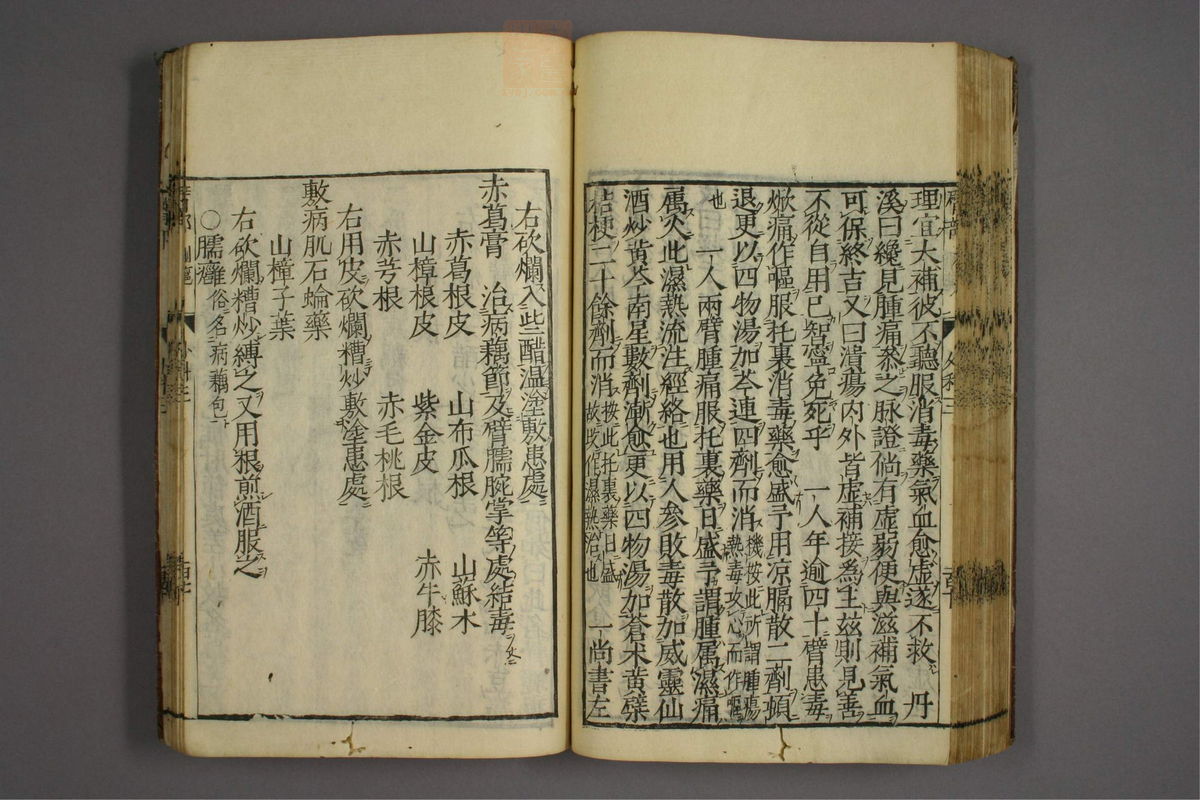 理宜大補彼不聽服消毒藥氣血愈虛遂不救　丹
溪曰纔見腫痛參之脉證倘有虛弱便與滋補氣血
可保終吉又曰潰瘍内外皆虛補接為主兹則見善
不從自用已智寧免死乎　一人年逾四十臂患毒
焮痛作嘔服托裏消毒藥愈盛予用凉膈散二劑頓
退更以四物湯加芩連四劑而消機按此所謂腫瘍熱毒攻心而作嘔
也　一人兩臂腫痛服托裏藥日盛予謂腫属濕痛
属火此濕熱流注經絡也用人參敗毒散加威靈仙
酒炒黄芩南星數劑漸愈更以四物湯加蒼术黄蘗
桔梗二十餘劑而消按此托裏藥日盛故改作濕熱治也　一尚書左
右砍爛入些醋温塗敷患處
赤葛膏　治病藕節及臂臑腕掌等處結毒
赤葛根皮　山布瓜根　山蘇木
山樟根皮　紫金皮　赤牛膝
赤芍根　赤毛桃根
右用皮砍爛糟炒敷塗患處
敷病肌石蜦藥
山樟子葉
右砍爛糟炒縛之又用根煎酒服之
○臑癰俗名病藕包